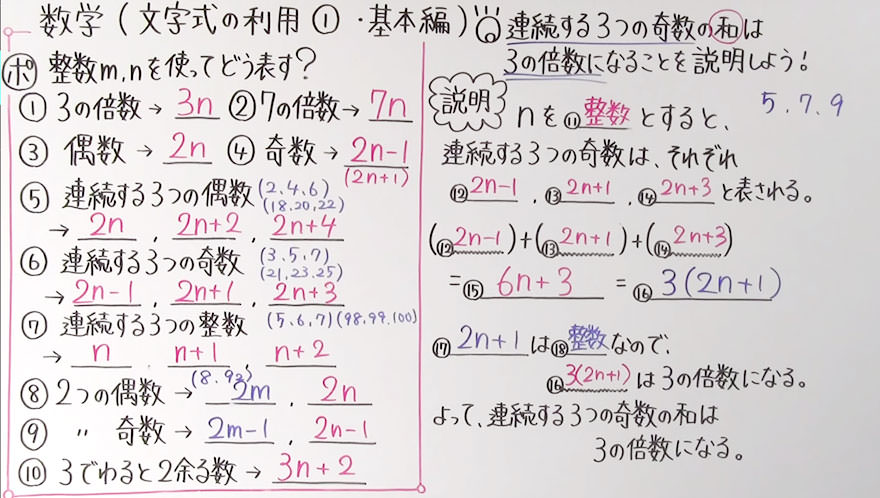 数学(文字式の利用①・基本編)
ポ 整数m,nを使ってどう表す?
① 3の倍数→ 3n ② 7の倍数→ 7n
③ 偶数→ 2n ④ 奇数→ 2n-1
(2n+1)
⑤ 連続する3つの偶数(2,4,6)
(18,20,22)
→ 2n , 2n+2 , 2n+4
⑥ 連続する3つの奇数(3,5,7)
(21,23,25)
→ 2n-1 , 2n+1 , 2n+3
⑦ 連続する3つの整数(5,6,7)(98,99,100)
→ n , n+1 , n+2
⑧ 2つの偶数→ 2m , 2n
⑨ 〃 奇数→ 2m-1 , 2n-1
⑩ 3でわると2余る数→ 3n+2
連続する3つの奇数の和は
3の倍数になることを説明しよう!
説明
5,7,9
nを⑪整数とすると、
連続する3つの奇数は、それぞれ
⑫2n-1 , ⑬2n+1 , ⑭2n+3と表される。
(⑫2n-1)+(⑬2n+1)+(⑭2n+3)
=⑮6n+3 =⑯3(2n+1)
⑰2n+1は⑱整数なので、
⑯3(2n+1)は3の倍数になる。
よって、連続する3つの奇数の和は
3の倍数になる。